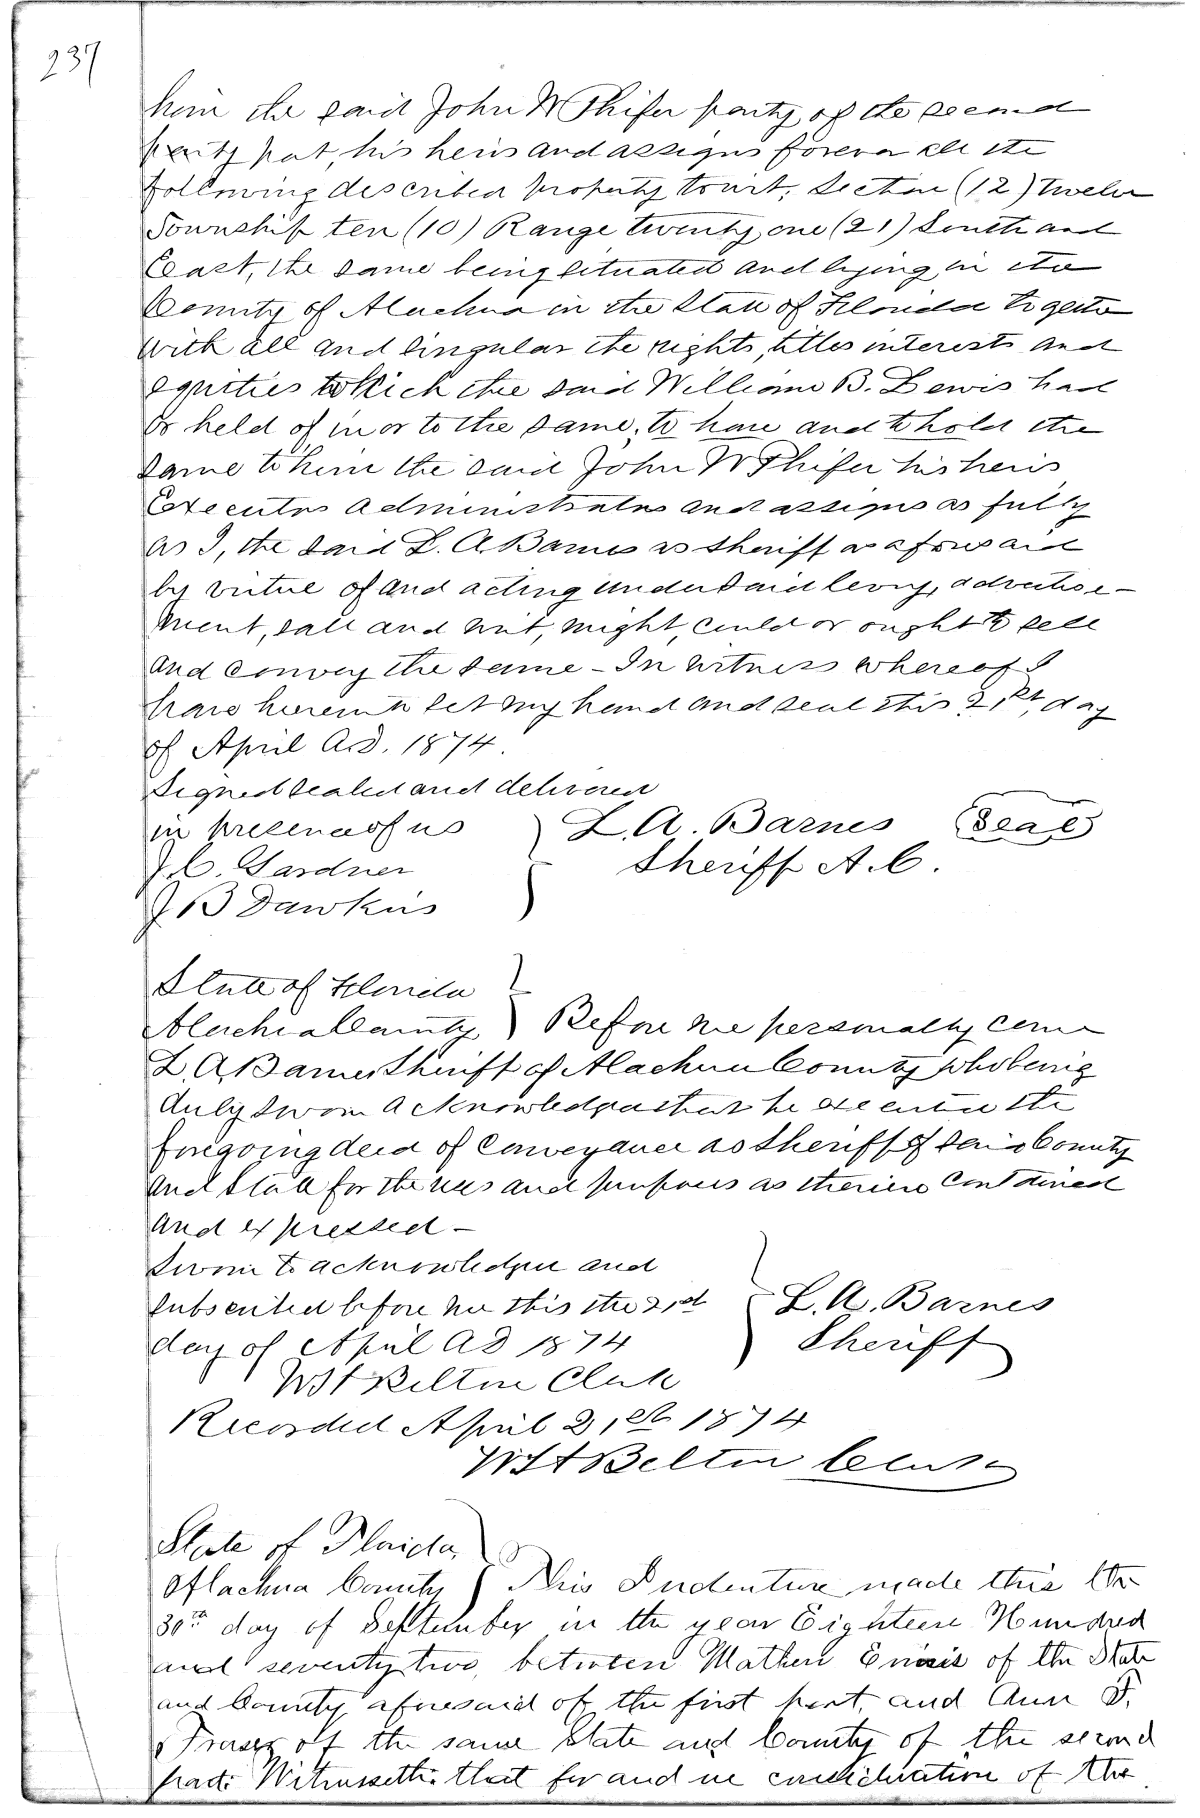 237
him the said John W Phifer party of the second
party part, his heirs and assigns forever all the
following described property towit; Section (12) twelve
Township ten (10) Range twenty one (21) South and
East, the same being situated and lying in the
County of Alachua in the State of Florida together
with all and singular the rights, titles interests and
equities which the said William B. Lewis had
or held of in or to the same, to have and to hold the
same to him the said John W Phifer his heirs
Executors administrators and assigns as fully
as I, the said L. A. Barnes as Sheriff as aforesaid
by virtue of and acting under said levy, advertise-
ment, sale and writ, might, could or ought to sell
and convey the same - In witness whereof I
have hereunto set my hand and seal this 21st, day
of April A.D. 1874.
Signed sealed and delivered
in presence of us } L. A. Barnes (Seal)
J. C. Gardner Sheriff A. C.
J B Dawkins
State of Florida }
Alachua County } Before me personally came
L. A. Barnes Sheriff of Alachua County who being
duly sworn acknowledges that he executed the
foregoing deed of Conveyance as Sheriff of said County
and State for the uses and purposes as therein Contained
and expressed -
Sworn to acknowledged and
subscribed before me this the 21st } L. A. Barnes
day of April AD 1874 Sheriff
W H Belton Clerk
Recorded April 21st 1874
W H Belton Clerk
State of Florida,
Alachua County } This Indenture made this the
30th day of September in the year Eighteen Hundred
and seventy two, between Mathew Ennis of the State
and County aforesaid of the first part, and Ann F.
Fraser of the same State and County of the second
part: Witnesseth: that for and in consideration of the